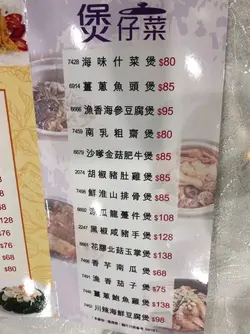 煲仔菜
7428 海味什菜煲 $80
6914 薑蔥魚頭煲 $85
6666 漁香海參豆腐煲 $95
7459 南乳粗齋煲 $80
6679 沙嗲金菇肥牛煲 $85
2074 胡椒豬肚雞煲 $85
7498 鮮淮山排骨煲 $85
瓜瓏蓬件煲 $108
2247 黑椒咸豬手煲 $138
花膠北菇玉掌煲 $138
香芋南瓜煲 $68
漁香茄子煲 $75
薑蔥鮑魚雞煲 $138
川辣海鮮豆腐煲 $98
$128
$76
$68
$68